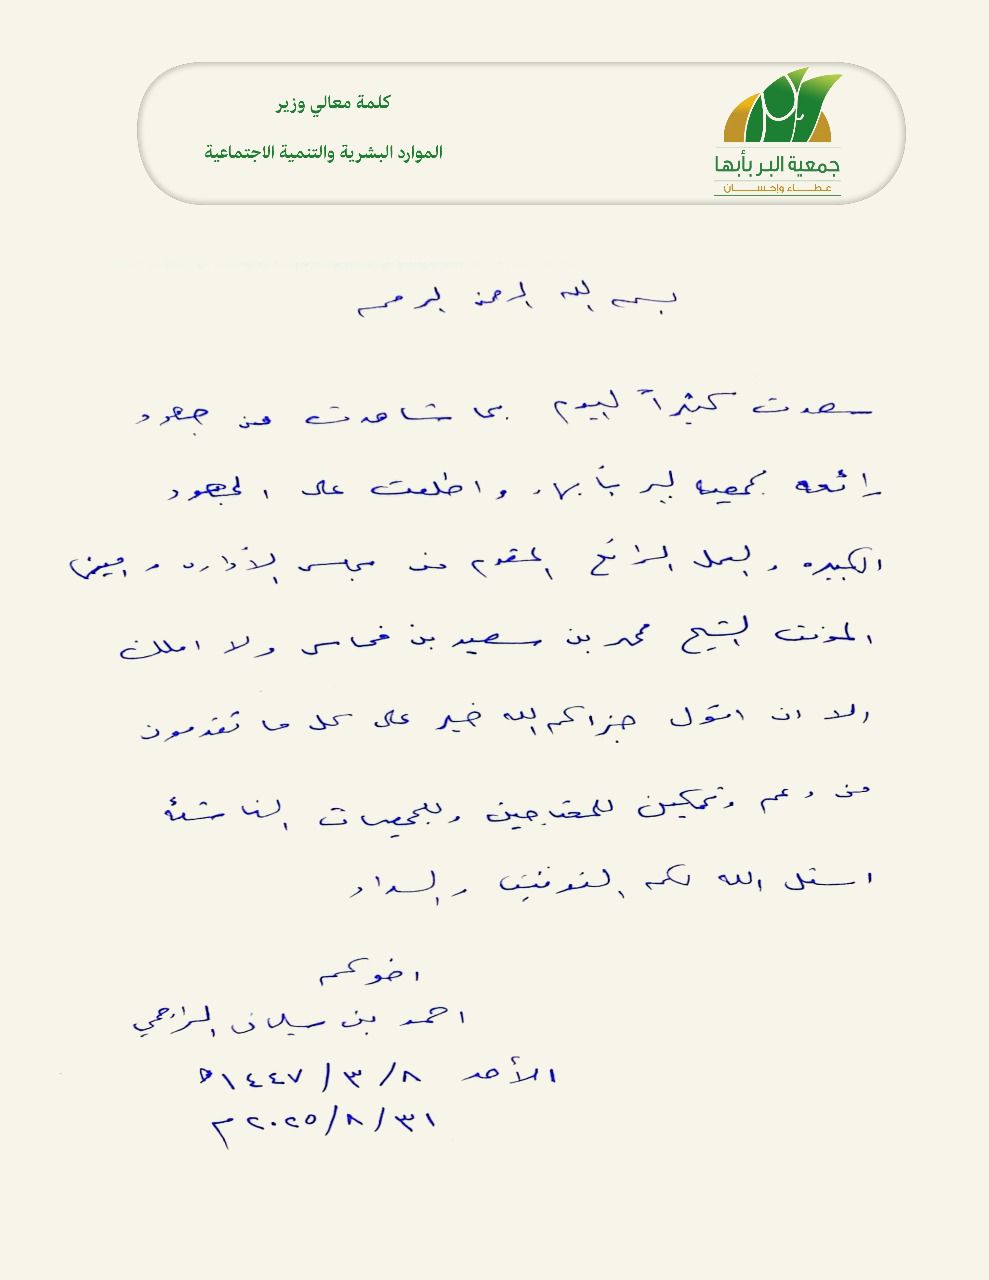 كلمة معالي وزير
الموارد البشرية والتنمية الاجتماعية
جمعية البر بأبها
عطاء وإحسان
بسم الله الرحمن الرحيم
سعدت كثيراً اليوم بما شاهدت من جهود
رائعه بجمعية البر بأبها، واطلعت على الجهود
الكبيره والعمل الرائع المقدم من مجلس الأداره و
الشيخ محمد بن سعيد بن ولا املك
الا ان اقول جزاكم الله خير على كل ما تقدمون
من دعم وتمكين للمحتاجين وللجمعيات الناشئة
اسئل الله لكم التوفيق والسداد
اخوكم
احمد بن سليمان الراجحي
الأحد ٨/٣/١٤٤٧ه
٣١/٨/٢٠٢٥م